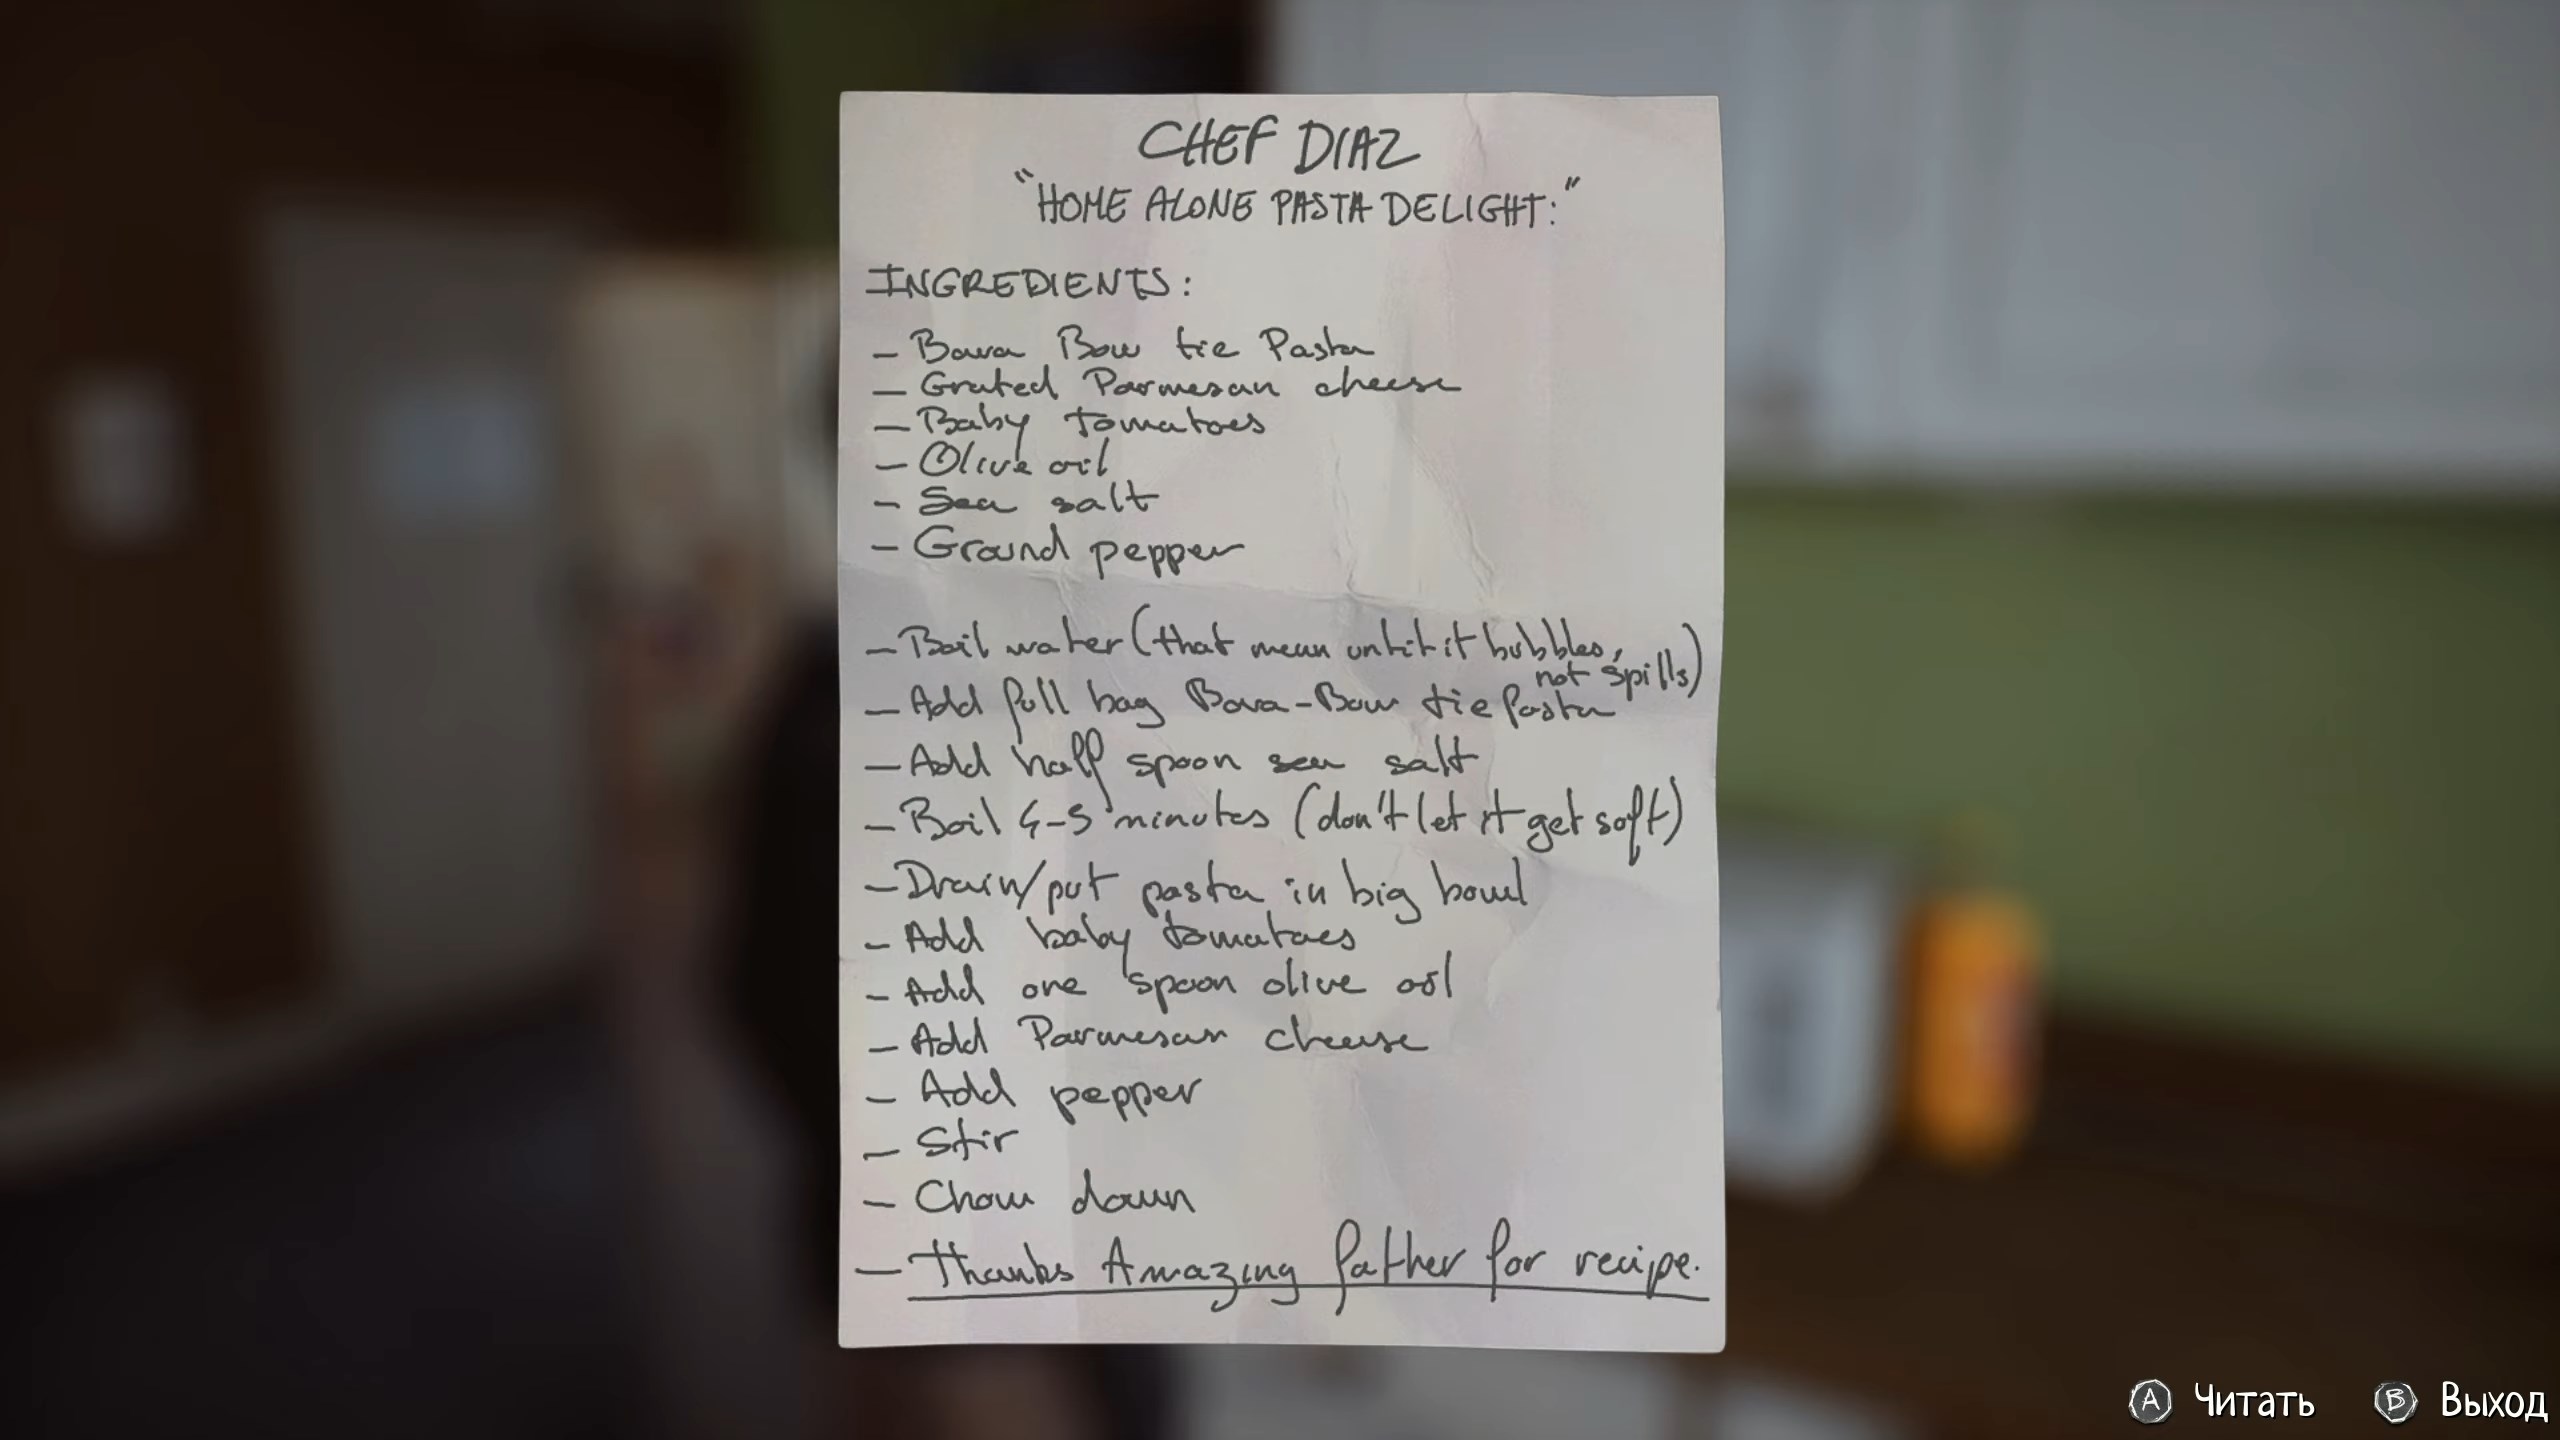 CHEF DIAZ
"HOME ALONE PASTA DELIGHT:"
INGREDIENTS:
- Bava Bow tie Pasta
- Grated Parmesan cheese
- Baby tomatoes
- Olive oil
- Sea salt
- Ground pepper
- Boil water (that mean until it bubbles,
not spills)
- Add full bag Bava-Bow tie Pasta
- Add half spoon sea salt
- Boil 4-5 minutes (don't let it get soft)
- Drain/put pasta in big bowl
- Add baby tomatoes
- Add one spoon olive oil
- Add Parmesan cheese
- Add pepper
- Stir
- Chow down
- Thanks Amazing father for recipe.
A Читать B Выход